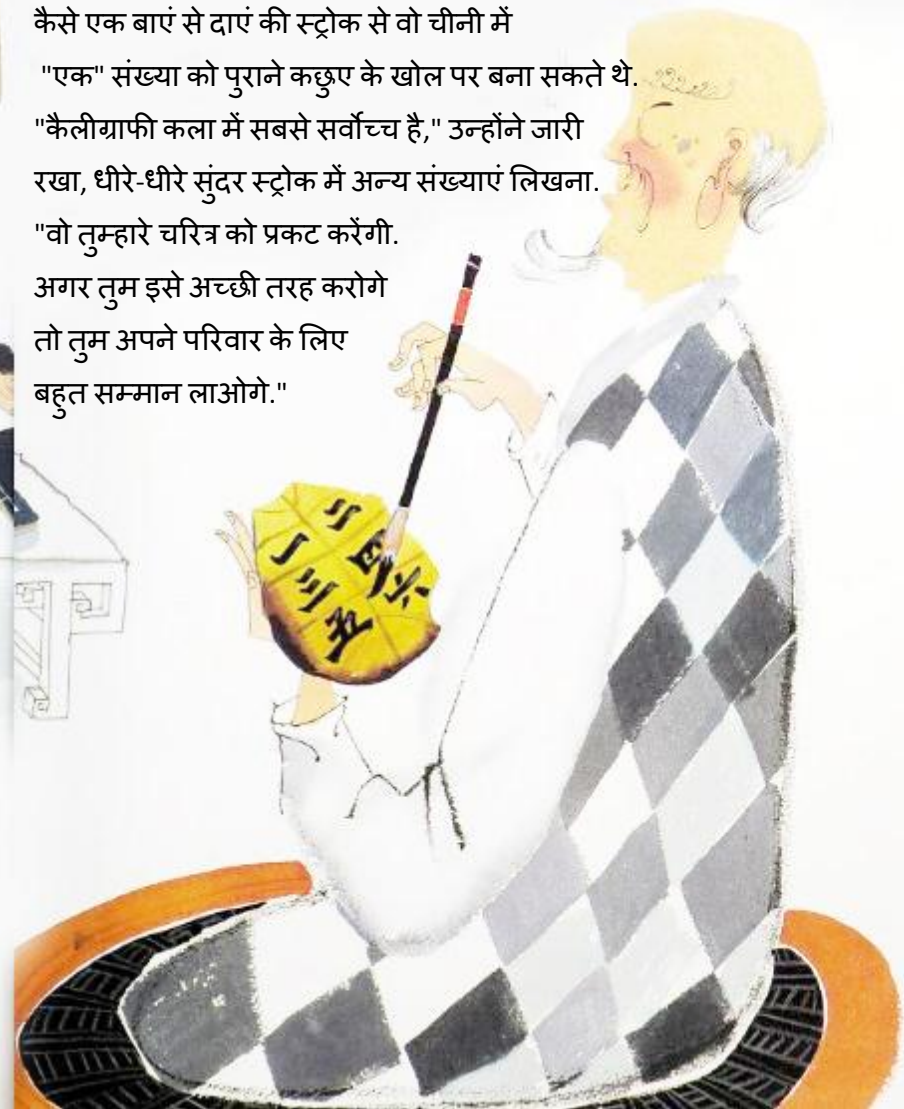 कैसे एक बाएं से दाएं की स्ट्रोक से वो चीनी में
"एक" संख्या को पुराने कछुए के खोल पर बना सकते थे.
"कैलीग्राफी कला में सबसे सर्वोच्च है," उन्होंने जारी
रखा, धीरे-धीरे सुंदर स्ट्रोक में अन्य संख्याएं लिखना.
"वो तुम्हारे चरित्र को प्रकट करेंगी.
अगर तुम इसे अच्छी तरह करोगे
तो तुम अपने परिवार के लिए
बहुत सम्मान लाओगे."
一
二
三
四
五
六